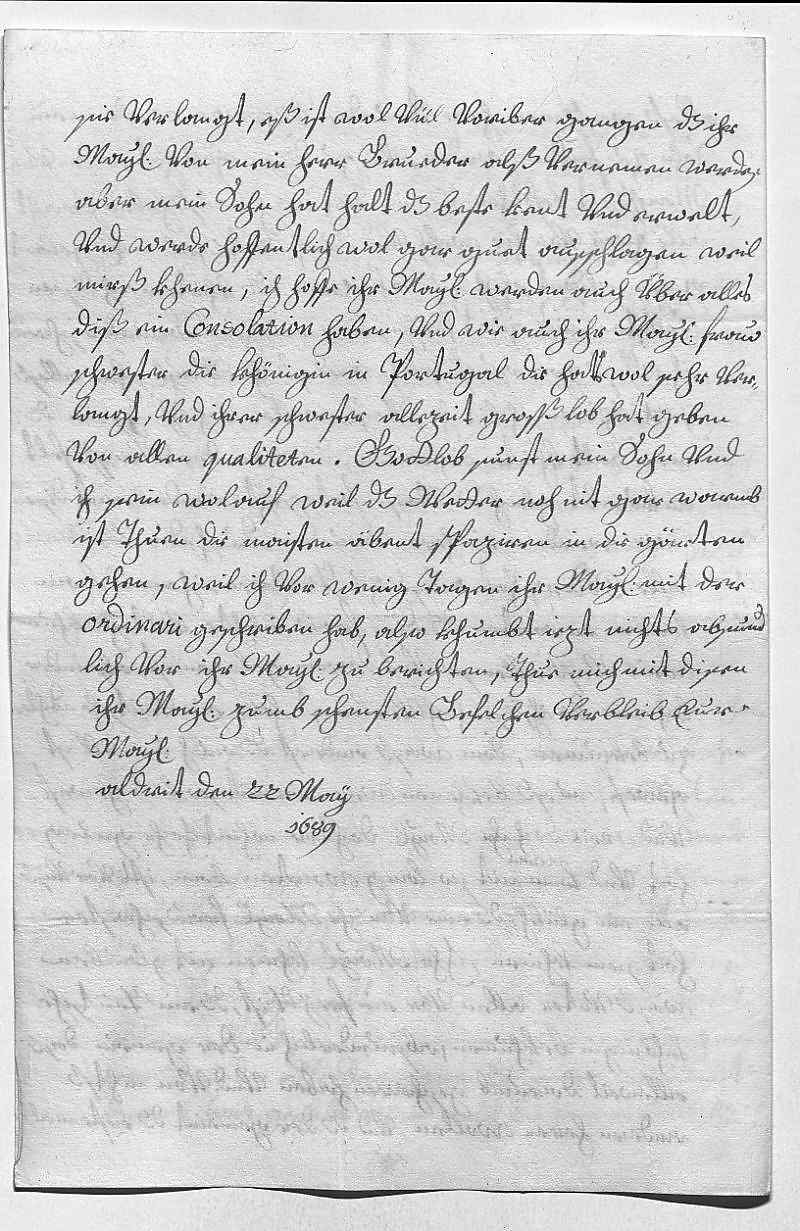 sie Verlangt, eß ist wol Vill Voriber gangen dz ihr
Mayl: Von mein herr Brueder alß Vernemen werde,
aber mein Sohn hat halt dz beste kent Vnd erwelt,
Vnd werde hoffentlich wol gar guet ausschlagen weil
mirß khenen, ich hoffe ihr Mayl: werden auch Über alles
diß ein Consolation haben, Vnd wie auch ihr Mayl: frauw
schwester die khönigin in Portugal die hatts wol sehr Ver,
langt, Vnd ihrer schwester allezeit groß lob hat geben
Von allen qualiteten. Gottlob sunst mein Sohn Vnd
ich sein wolauf weil dz Wetter noh nit gar warmb
ist Thuen die maisten abent sPaziren in die gärten
gehen, weil ich Vor wenig Tagen ihr Mayl: mit der
ordinari geschriben hab, also khumbt iezt nichts absund
lich Vor ihr Mayl: zu berichten, Thue mich mit disen
ihr Mayl: zumb schensten Befelchen Verbleib Eur
Mayl:
den 22 Maÿ
1689